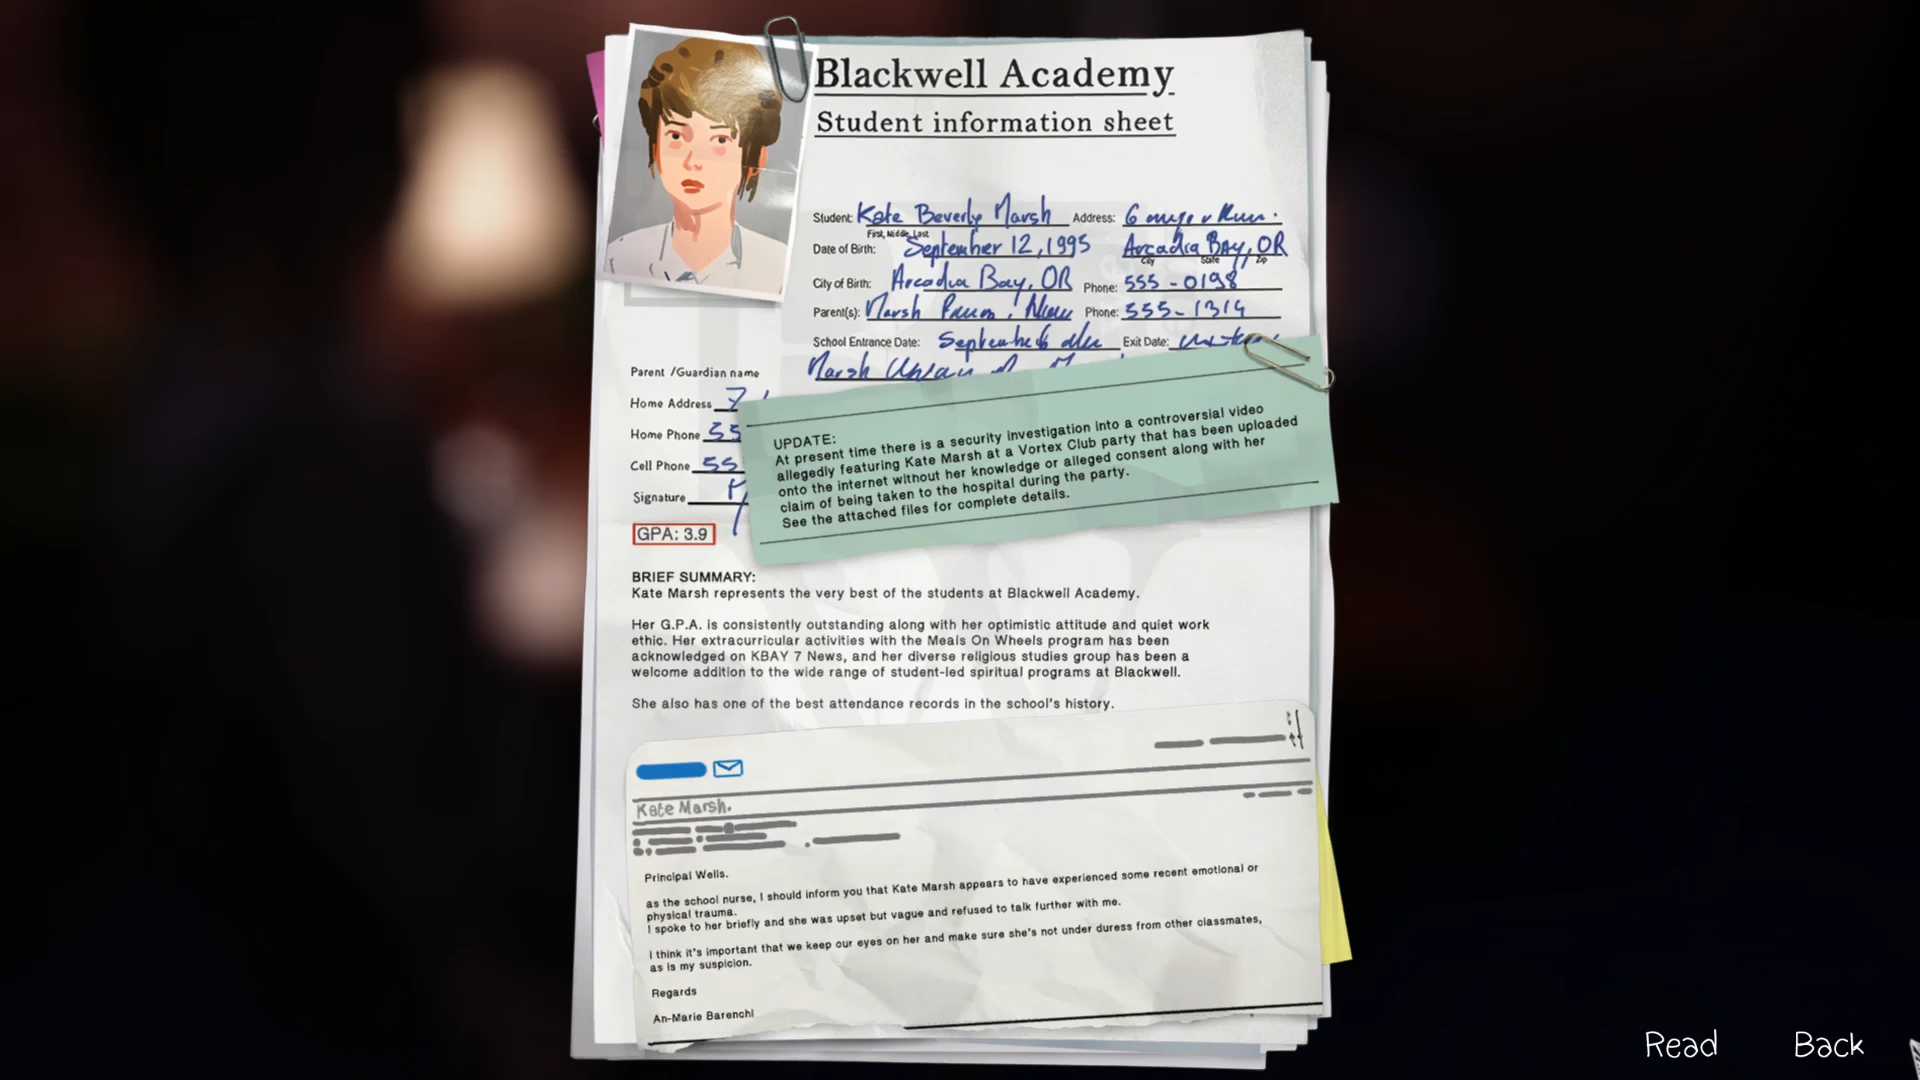 Blackwell Academy
Student information sheet
Student: Kate Beverly Marsh Address:
First, Middle, Last
Date of Birth: September 12, 1995 Arcadia Bay, OR
City State Zip
City of Birth: Arcadia Bay, OR Phone: 555-0198
Parent(s): Marsh Phone: 555-1314
School Entrance Date: September Exit Date:
Parent /Guardian name Marsh
Home Address
Home Phone 55
Cell Phone 55
Signature
UPDATE:
At present time there is a security investigation into a controversial video
allegedly featuring Kate Marsh at a Vortex Club party that has been uploaded
onto the internet without her knowledge or alleged consent along with her
claim of being taken to the hospital during the party.
See the attached files for complete details.
GPA: 3.9
BRIEF SUMMARY:
Kate Marsh represents the very best of the students at Blackwell Academy.
Her G.P.A. is consistently outstanding along with her optimistic attitude and quiet work
ethic. Her extracurricular activities with the Meals On Wheels program has been
acknowledged on KBAY 7 News, and her diverse religious studies group has been a
welcome addition to the wide range of student-led spiritual programs at Blackwell.
She also has one of the best attendance records in the school's history.
Kate Marsh.
Principal Wells.
as the school nurse, I should inform you that Kate Marsh appears to have experienced some recent emotional or
physical trauma.
I spoke to her briefly and she was upset but vague and refused to talk further with me.
I think it's important that we keep our eyes on her and make sure she's not under duress from other classmates,
as is my suspicion.
Regards
An-Marie Barenchi
Read Back